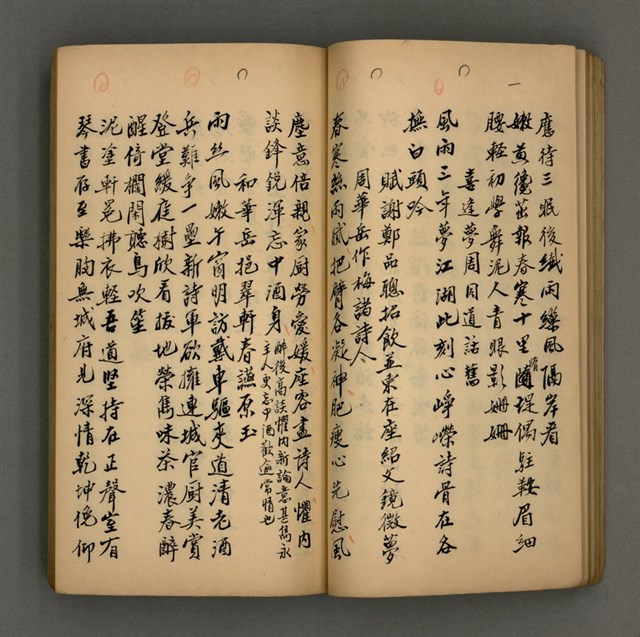 應待三眠後纖雨纖風隔岸看
嫩黃禮茁報春寒十里隨堤偶駐鞍眉細
腰輕初學舞泥人青眼影姍姍
喜逢夢周目道話舊
風雨三年夢江湖此刻心崢嶸詩骨在各
撫白頭吟
賦謝鄭品聰招飲並柬在座紹文鏡微夢
周華岳作梅諸詩人
春寒無雨賦把臂各凝神肥瘦心先慰風
塵意倍親家厨勞愛媛座客盡詩人懼內
談鋒銳渾忘中酒身醉後高談懼內新論意甚雋永
主人更忘中酒歡逾常情也
和華岳挹翠軒春讌原玉
雨絲風嫩午窗明訪戴車驅夾道清老酒
兵難爭一壘新詩軍欲擁連城官厨美賞
登堂緩庭樹欣看拔地榮雋味茶濃春醉
醒倚欄閑聽鳥吹笙
泥塗軒冕拂衣輕吾道堅持在正聲室有
琴書存至樂胸無城府見深情乾坤俛仰